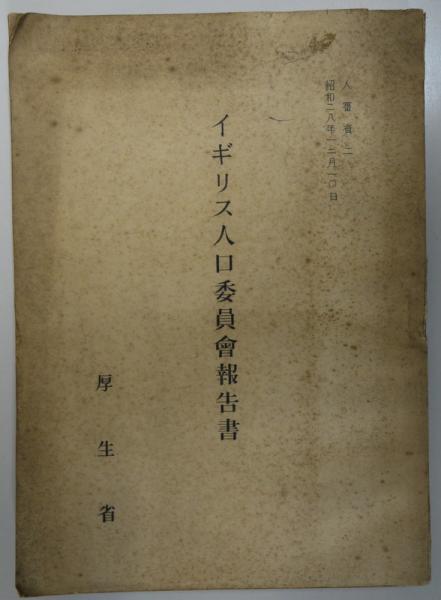 人審資二
昭和二八年一二月一〇日
イギリス人口委員會報告書
厚生省